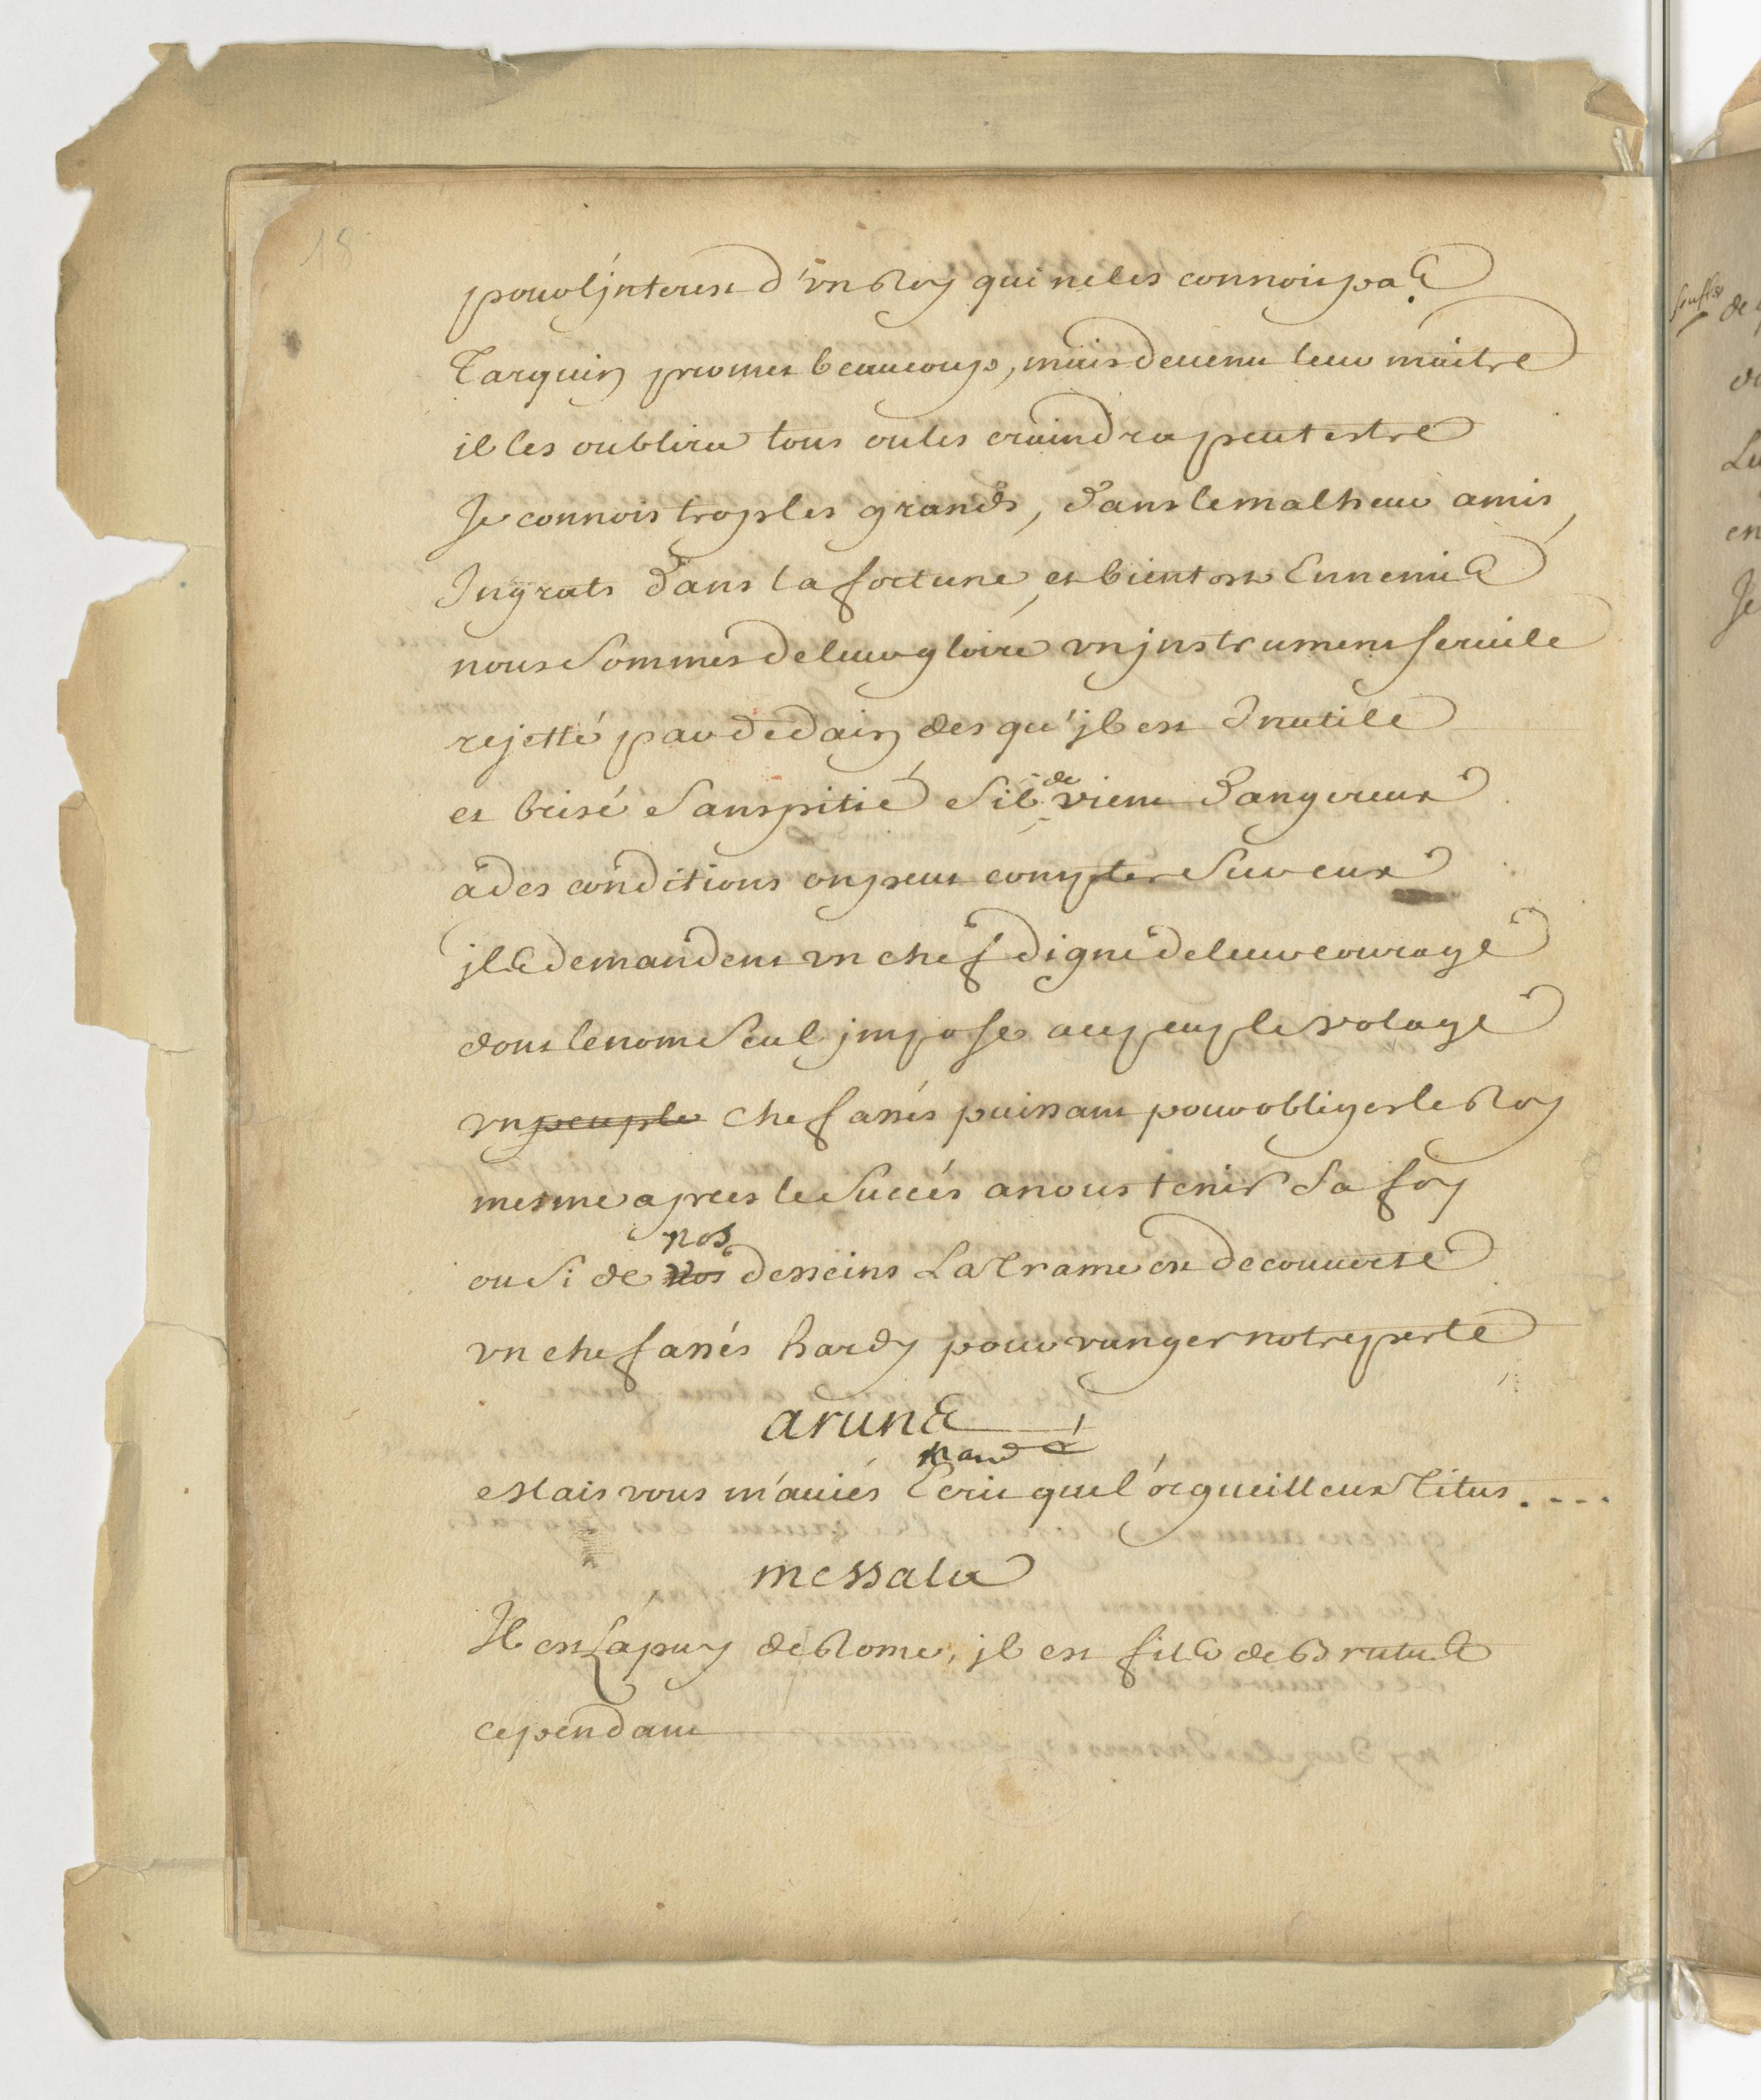 18
pour l'jnterest d'vn Roy qui ne les connoist pas.
Tarquin promet beaucoup, mais deuenu leur maitre
il les oublira tous ou les craindra peut estre
Je connois trop les grands, dans le malheur amis,
Ingrats dans la fortune, et bientost Ennemis
nous sommes de leur gloire vn jnstrument seruile
rejetté par dedain des qu'jl est Inutile
et brisé sans pitié s'il devient dangereux
a des conditions on peut compter sur eux
jls demandent vn chef digne de leur courage
dont le nom seul jmpose au peuple volage
vn peuple chef assés puissant pour obliger le Roy
mesme apres le succés a nous tenir sa foy
nos
ou si de vos desseins La Trame est decouuerte
vn chef assés hardy pour vanger notre perte
aruns
mandé
Mais vous m'auiés Ecrit que l'orgueilleux Titus....
messala
Il est L'apuy de Rome, jl est fils de Brutus
cependant